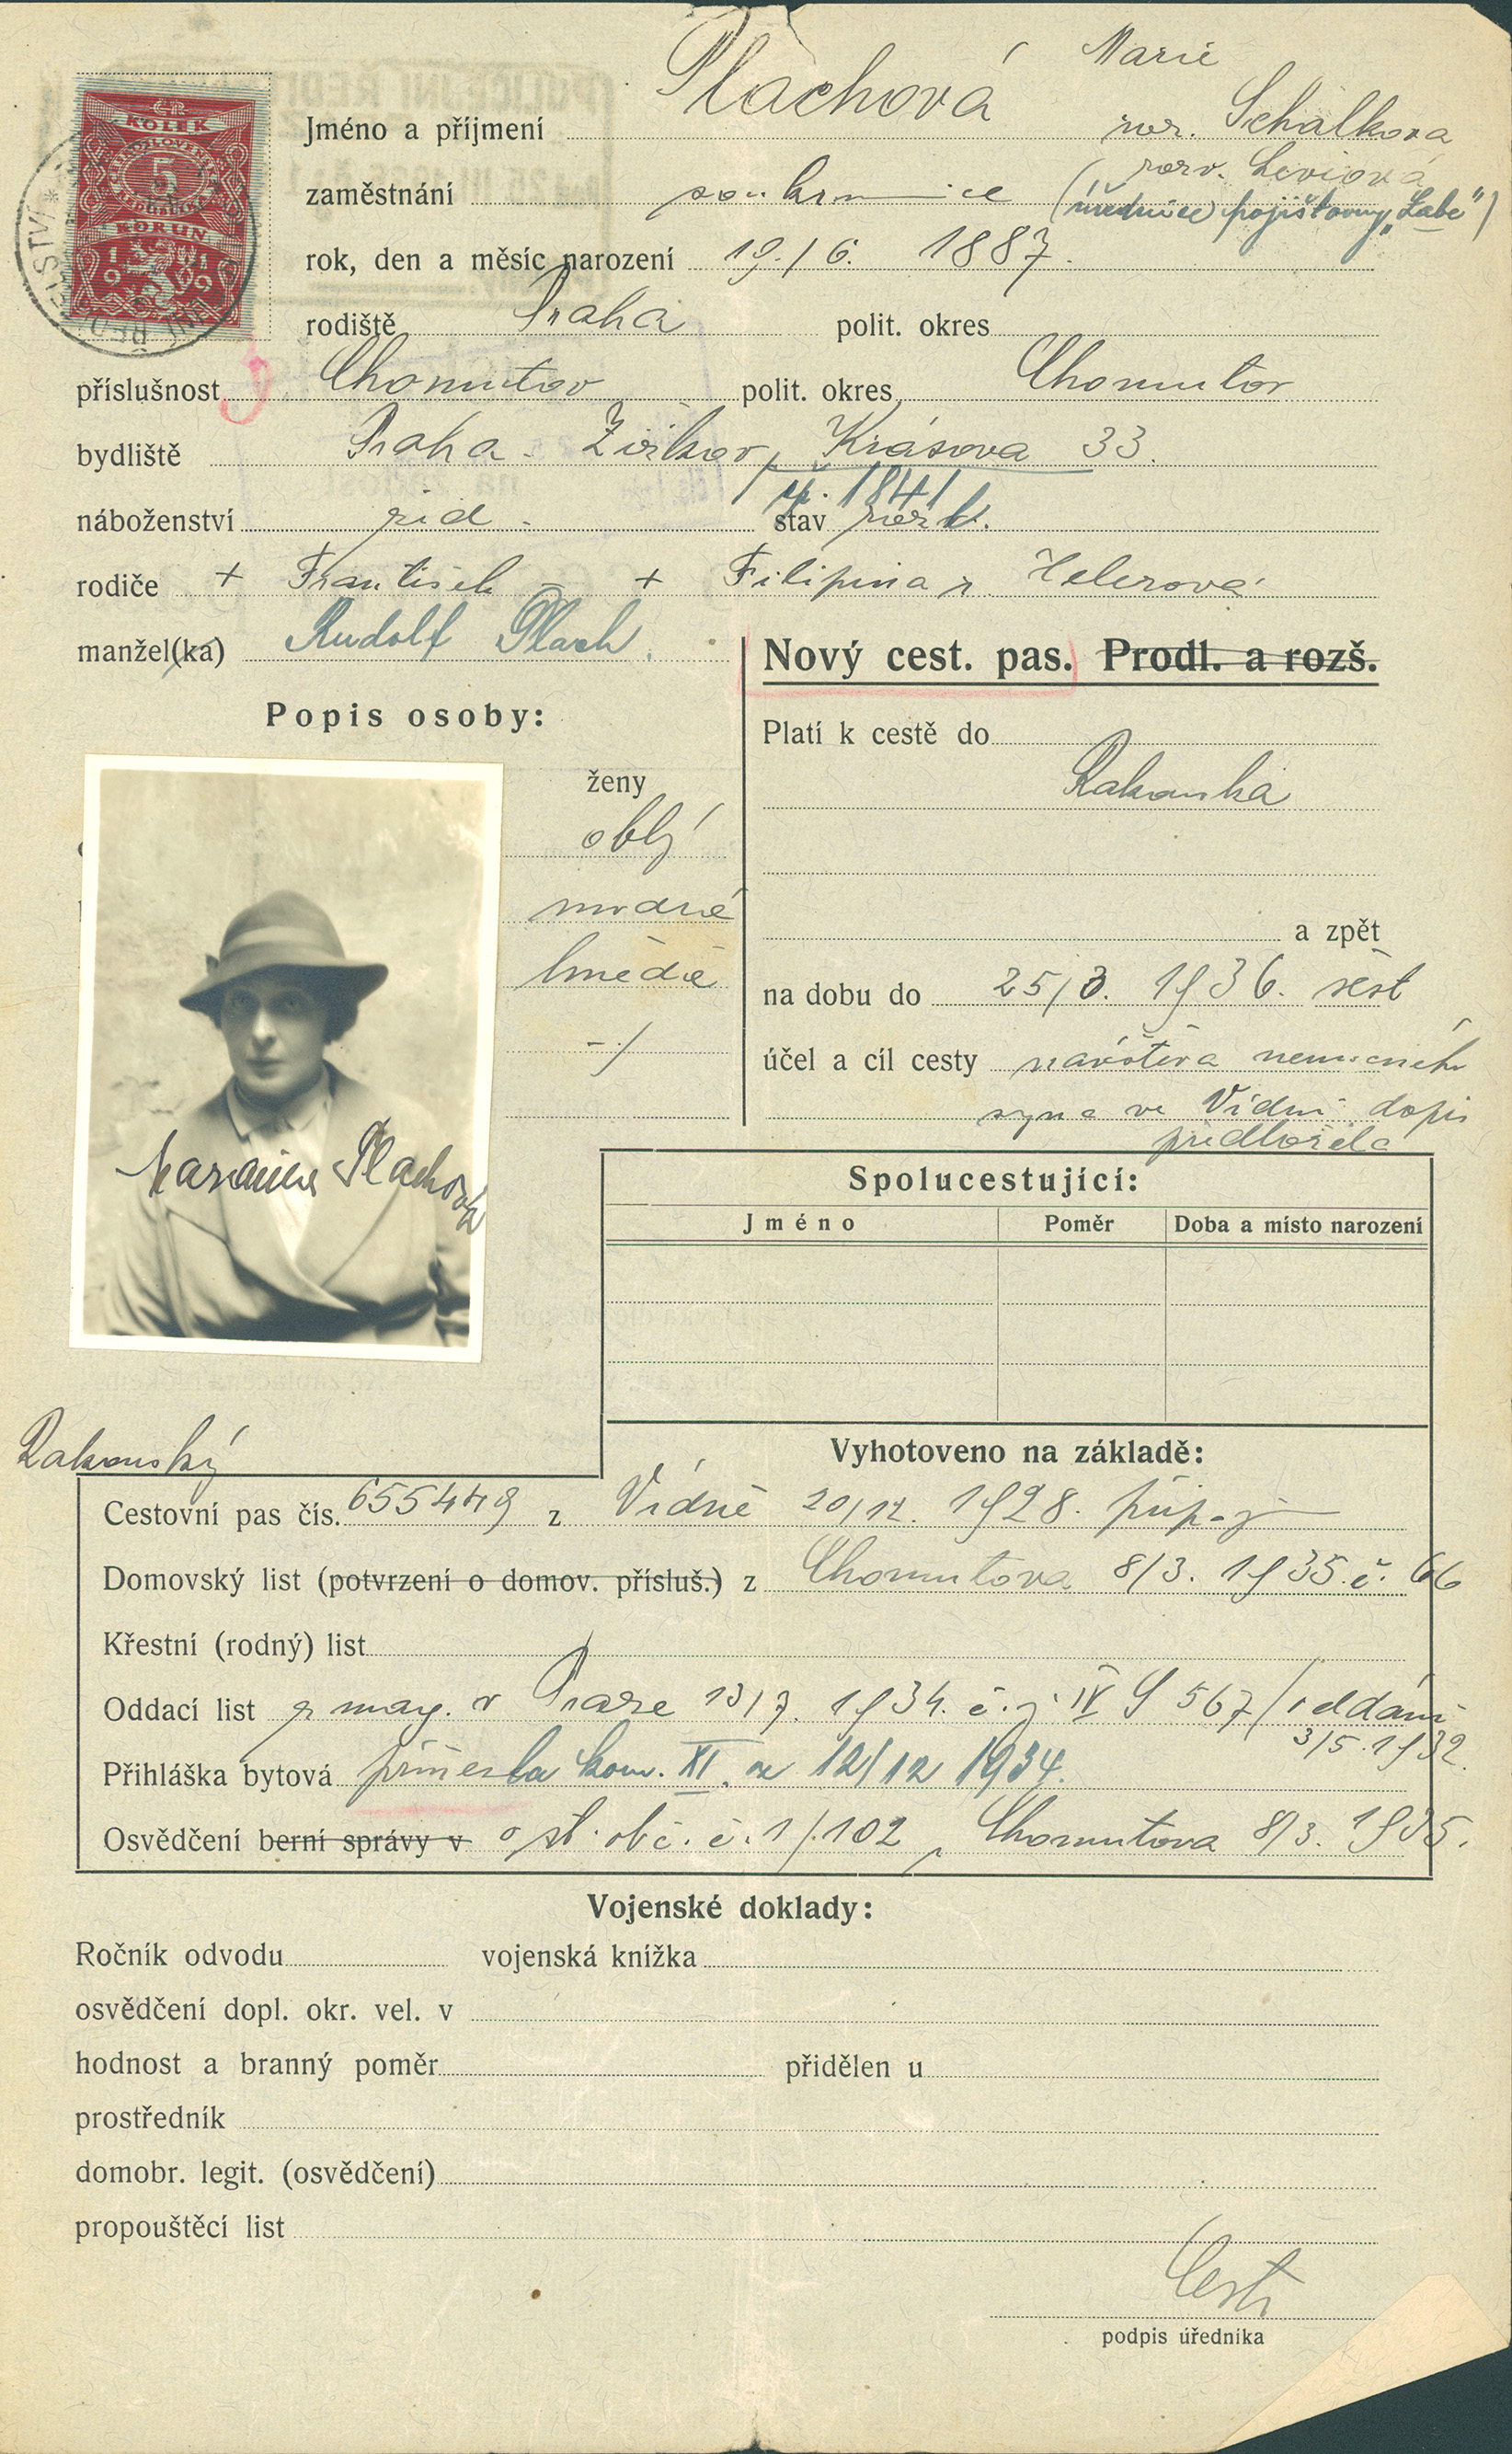 Plachová Marie
Jméno a příjmení
roz. Schalková
rozv. Leviová
zaměstnání soukromnice (úřednice pojišťovny „Labe“)
rok, den a měsíc narození 19./6. 1887.
rodiště Praha polit. okres
příslušnost Chomutov polit. okres Chomutov
bydliště Praha - Žižkov, Krásova 33.
čp. 1841
náboženství žid. stav
rodiče + František - + Filipina r. Helerová
manžel(ka) Rudolf Plach.
Nový cest. pas. Prodl. a rozš.
Popis osoby:
Platí k cestě do
ženy
Rakouska
oblý
modré
a zpět
hnědé
na dobu do 25/3. 1936. šest
-/
účel a cíl cesty návštěva nemocného
syna ve Vídni dopis
předložila
Marianna Plachová
Spolucestující:
Jméno Poměr Doba a místo narození
Rakouský
Vyhotoveno na základě:
Cestovní pas čís. 655449 z Vídně 20/12. 1928.
Domovský list (potvrzení o domov. přísluš.) z Chomutova 8/3. 1935 č. 66
Křestní (rodný) list
Oddací list z mag. v Praze 13/7. 1934. č. j. IV S 567/oddáni
3/5. 1932.
Přihláška bytová přinesla kom. XI. ze 12/12 1934.
Osvědčení berní správy v o st. obč. č. 1/102 z Chomutova 8/3. 1935.
Vojenské doklady:
Ročník odvodu vojenská knížka
osvědčení dopl. okr. vel. v
hodnost a branný poměr přidělen u
prostředník
domobr. legit. (osvědčení)
propouštěcí list
podpis úředníka
ČR
KOLEK
5
KORUN
1919